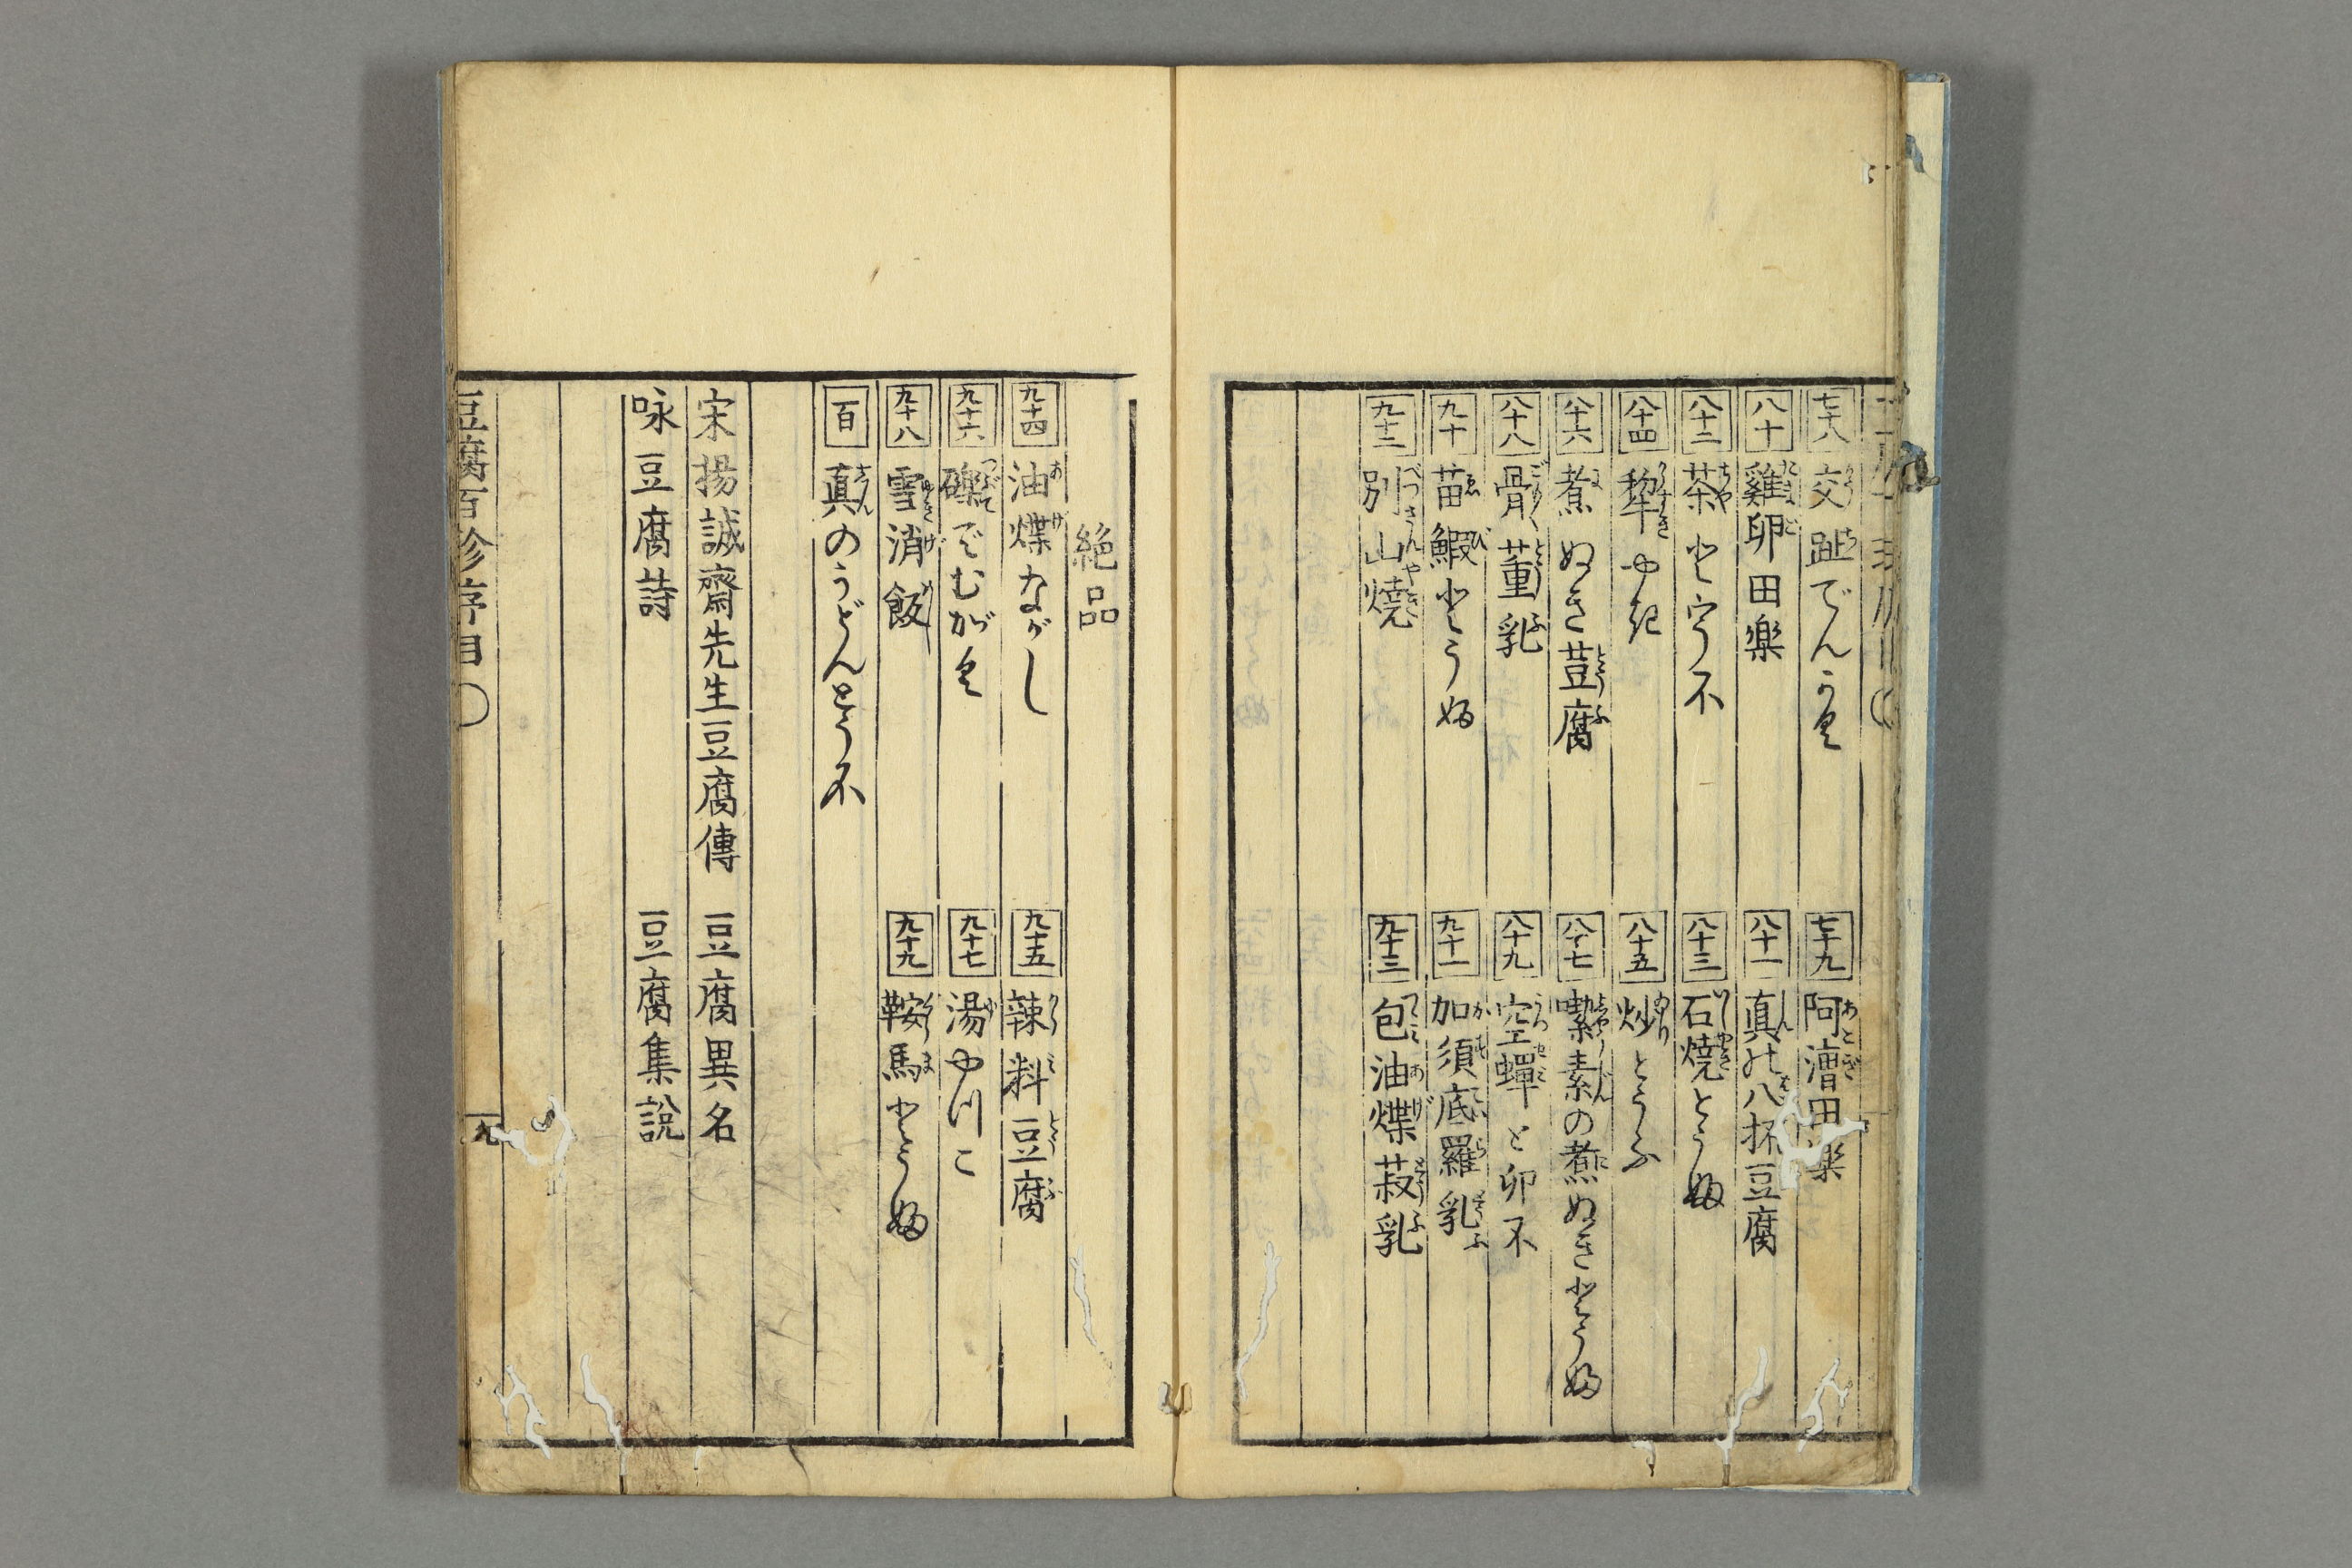 七十八 交趾でんがく
七十九 阿漕田楽
八十 雞卵田楽
八十一 真の八杯豆腐
八十二 茶とうふ
八十三 石焼とうふ
八十四 犂やき
八十五 炒とうふ
八十六 煮ぬき荳腐
八十七 嚛素の煮ぬきとうふ
八十八 骨董乳
八十九 空蟬とうふ
九十 苗鰕とうふ
九十一 加須底羅乳
九十二 別山焼
九十三 包油煠菽乳
絶品
九十四 油煠ながし
九十五 辣料豆腐
九十六 礫でむがく
九十七 湯やつこ
九十八 雪消飯
九十九 鞍馬とうふ
百 真のうどんとうふ
宋揚誠齋先生豆腐傳 豆腐異名
咏豆腐詩 豆腐集說
豆腐百珍序目 九